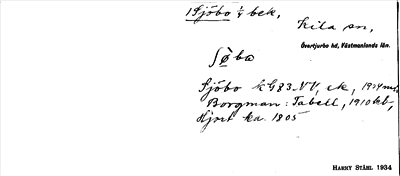 1 Sjöbo ¼ bek,
Kila sn,
Övertjurbo hd, Västmanlands län.
ʃö̀bo
Sjöbo kG83-VV, ek, 1934
Borgman: Tabell, 1910
Hjort ka 1805
HARRY STÅHL 1934